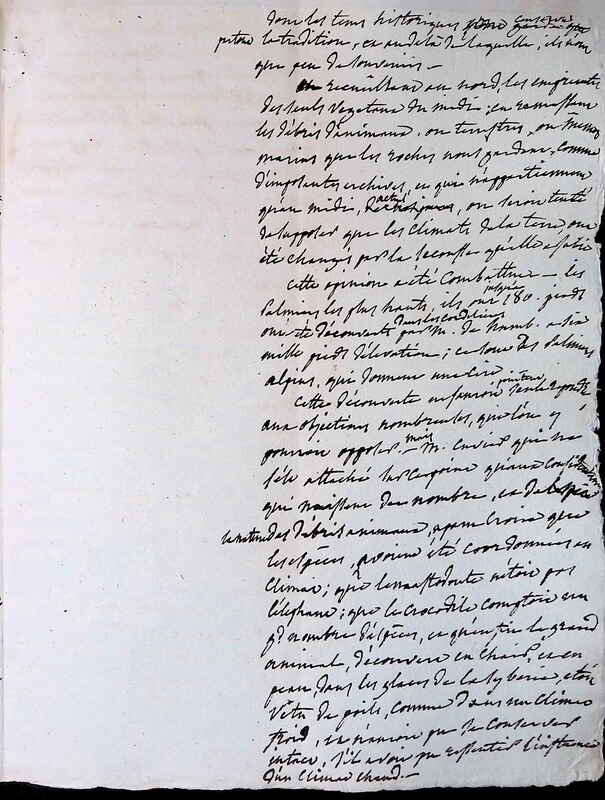 dans les tems historiques conservés
par la tradition, et au delà de laquelle, ils n'ont
que peu de souvenirs. —
recueillant au nord, les empreintes
des seuls vegetaux du midi; en ramassant
les débris d'animaux, ou terrestres, ou même
marins que les roches nous gardent, comme
d'imposantes archives, et qui n'appartiennent
qu'au midi, actuel, on seroit tenté
de supposer que les climats de la terre ont
été changés par la secousse qu'elle a subie
Cette opinion a été combattue — les
palmiers les plus hauts, ils ont jusqu'à 180. pieds
ont été découverts dans les cordelières par M. de Humb. a six
mille pieds d'élévation; ce sont des palmiers
alpins, qui donnent une cire
Cette découverte en fauroit peut être seule repondre
aux objections nombreuses, que l'on y
pourroit opposer. — mais M. Cuvier qui ne
s'est attaché sur ce point qu'aux considérations
qui naissent du nombre, et de l'espèce
la nature des débris animaux, a pu croire que
les espèces, avoient été coordonnées au
climat; que le mastodonte n'étoit pas
l'éléphant; que le crocodile comptoit un
gd. nombre d'espèces, et qu'enfin le grand
animal, découvert en chair, et en
peau, dans les glaces de la syberie, etoit
vêtu de poils, comme dans un climat
froid, et n'auroit pu se conserver
intact, s'il avoit pu ressentir l'influence
d'un climat chaud. —